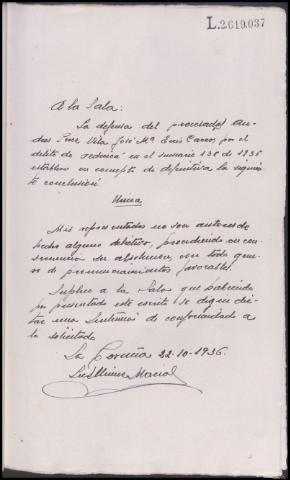 L.2619.037
A la Sala:
La defensa del procesado An-
drés Vila José Mª por el
delito de en el sumario 138 de 1936
establece en concepto de definitiva la siguien-
te conclusión
Unica
Mis representados no son autores de
hecho alguno delictivo, procediendo en con-
secuencia ser absueltos, con todo géne-
ro de pronunciamientos favorables.
Suplico a la Sala que habiendo
por presentado este escrito se digne dic-
tar una Sentencia de conformidad a
lo solicitado
La Coruña 22-10-1936.
Luis